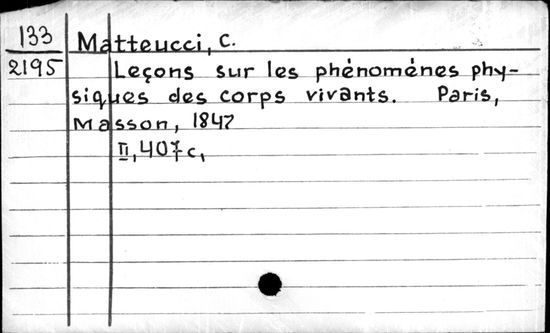 133 Matteucci, C.
2195 Leçons sur les phénoménes phy-
siques des corps vivants. Paris,
Masson, 1847
II, 407 c,